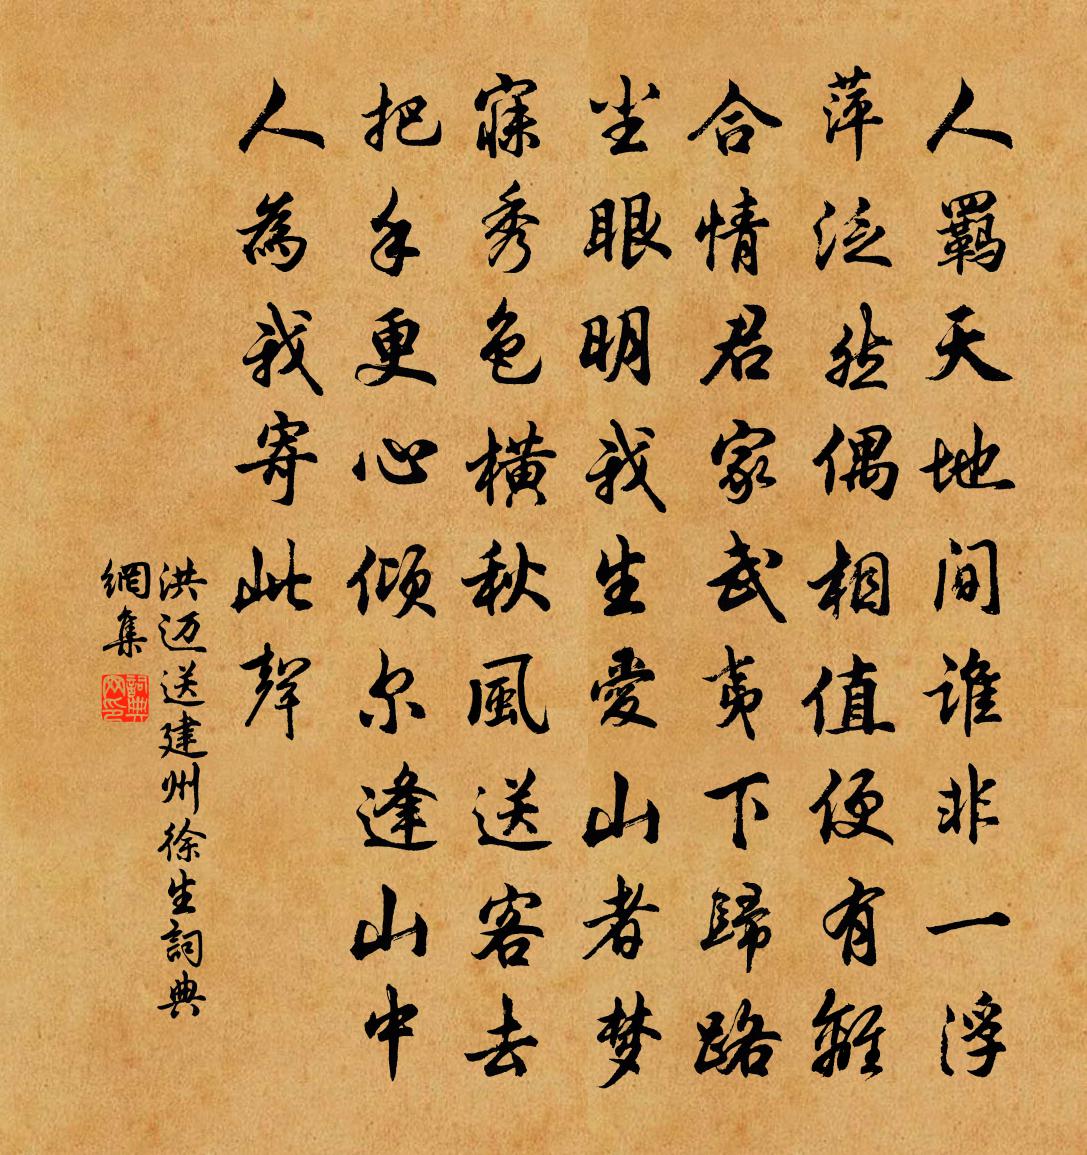 人羈天地间谁非一浮
萍泛然偶相值便有離
合情君家武夷下歸路
坐眼明我生愛山者梦
寐秀色橫秋風送客去
把手更心倾尔逢山中
人為我寄此聲
洪迈送建州徐生詞典
網集
詞典网印